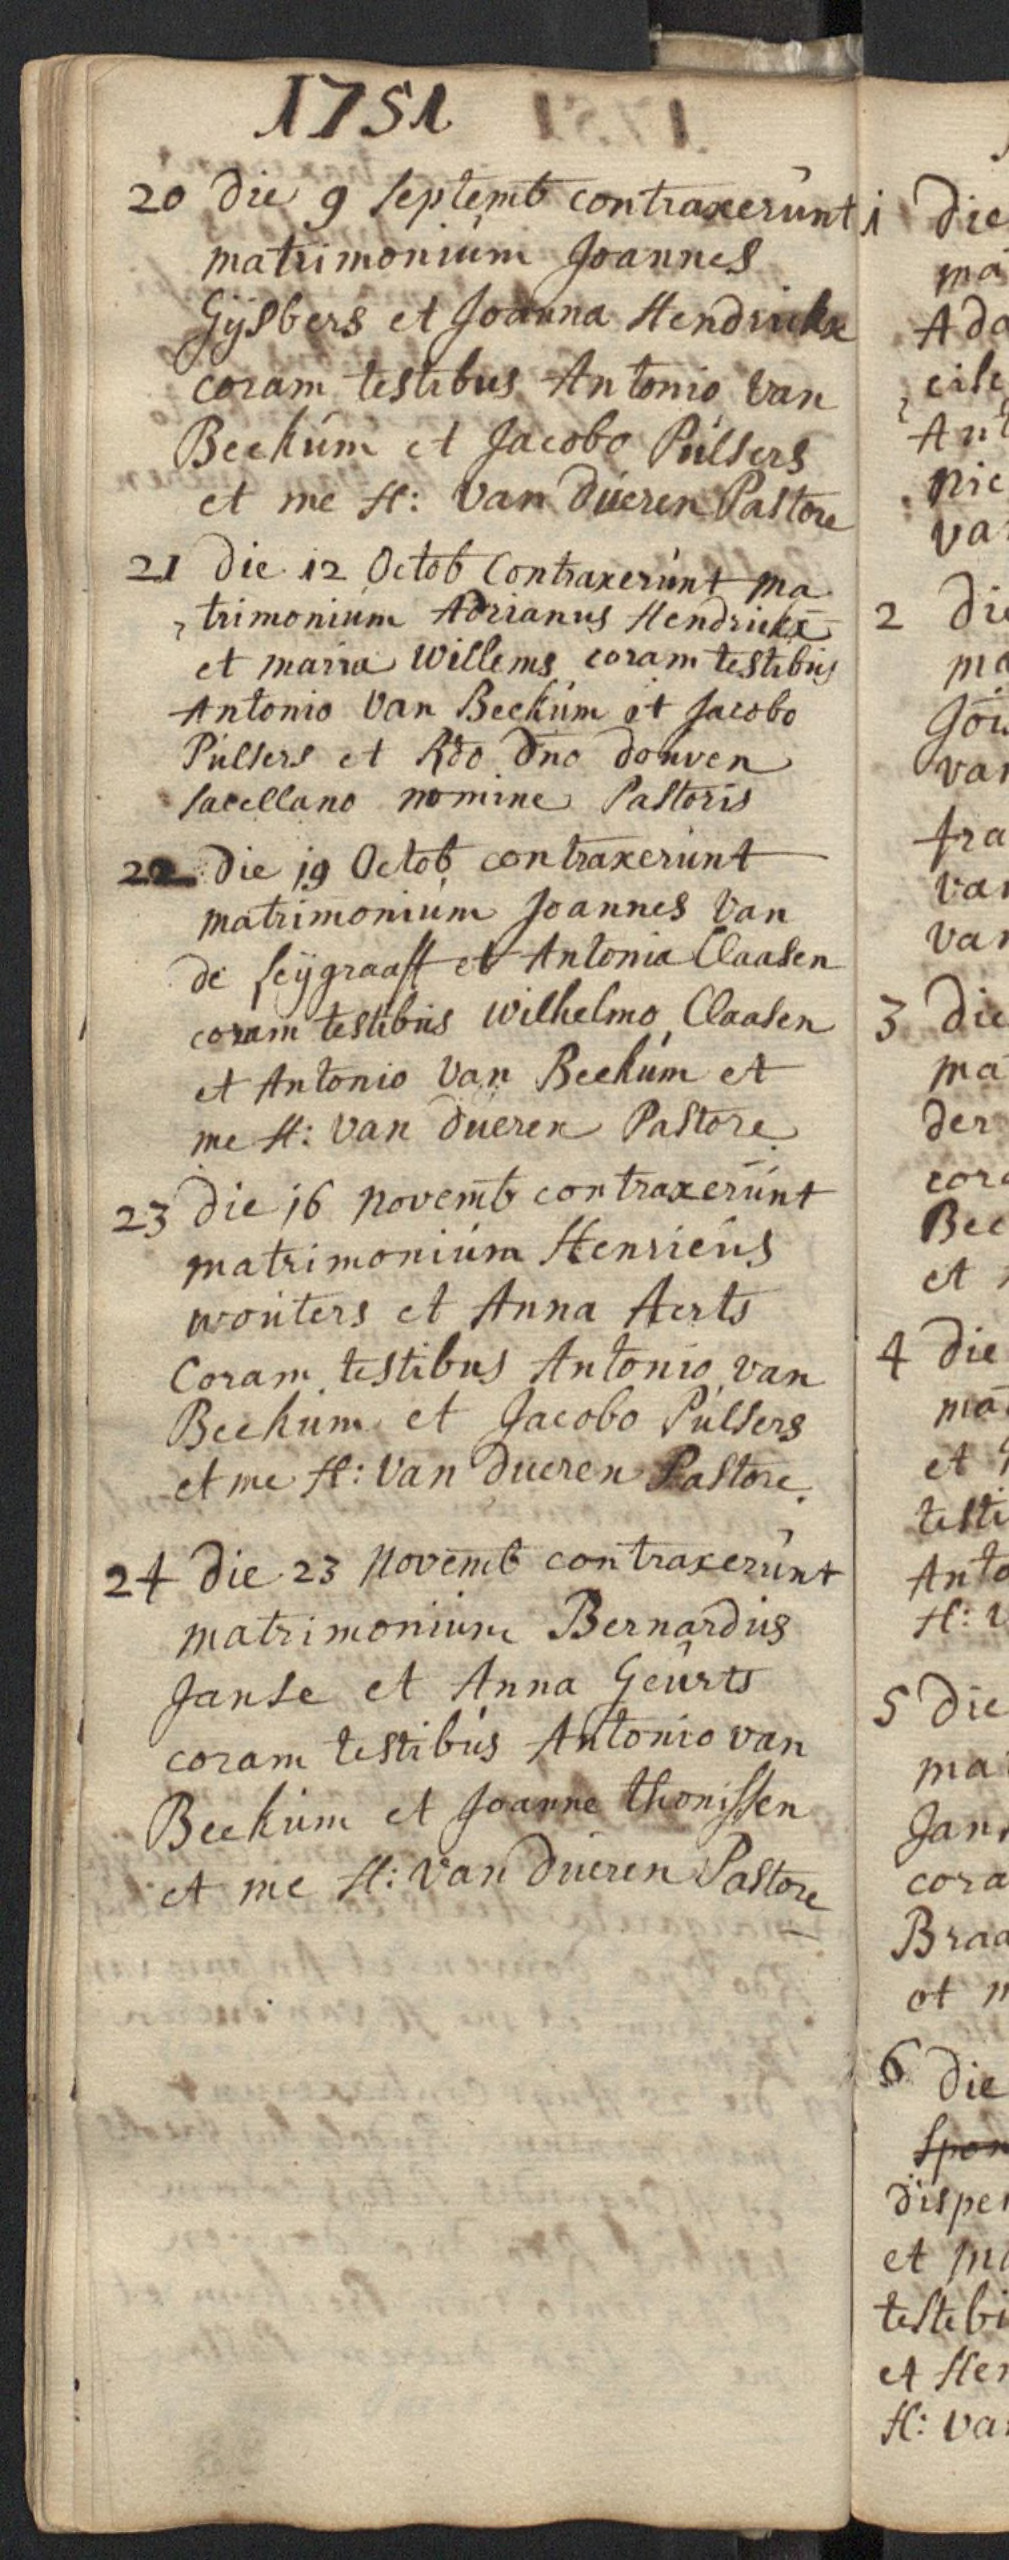 1751
20 die 9 Septemb contraxerunt
matrimonium Joannes
Gijsbers et Joanna Hendrickx
coram testibus Antonio Van
Beekum et Jacobo Pulsers
et me H: Van Dueren Pastore
21 die 12 Octob Contraxerunt ma
trimonium Adrianus Hendrickx
et maria Willems coram testibus
Antonio Van Beekum et Jacobo
Pulsers et Rdo Dno douven
sacellano nomine Pastoris
22 die 19 Octob contraxerunt
matrimonium Joannes Van
de Seijgraaff et Antonia Claasen
coram testibus Wilhelmo Claasen
et Antonio Van Beekum et
me H: Van Dueren Pastore
23 die 16 Novemb contraxerunt
matrimonium Henricus
wouters et Anna Aerts
Coram testibus Antonio van
Beekum et Jacobo Pulsers
et me H: Van Dueren Pastore.
24 die 23 Novemb contraxerunt
matrimonium Bernardus
Janse et Anna Geurts
coram testibus Antonio van
Beekum et Joanne thonissen
et me H: Van Dueren Pastore
1 die
ma
Ada
Ant
nic
va
2 die
ma
Gou
van
fra
van
van
3 die
ma
der
cora
Bee
et
4 die
ma
et
testi
Anto
H: V
5 die
ma
Jan
cora
Braa
et m
6 die
Spon
dispen
et ma
testibu
et Hen
H: van